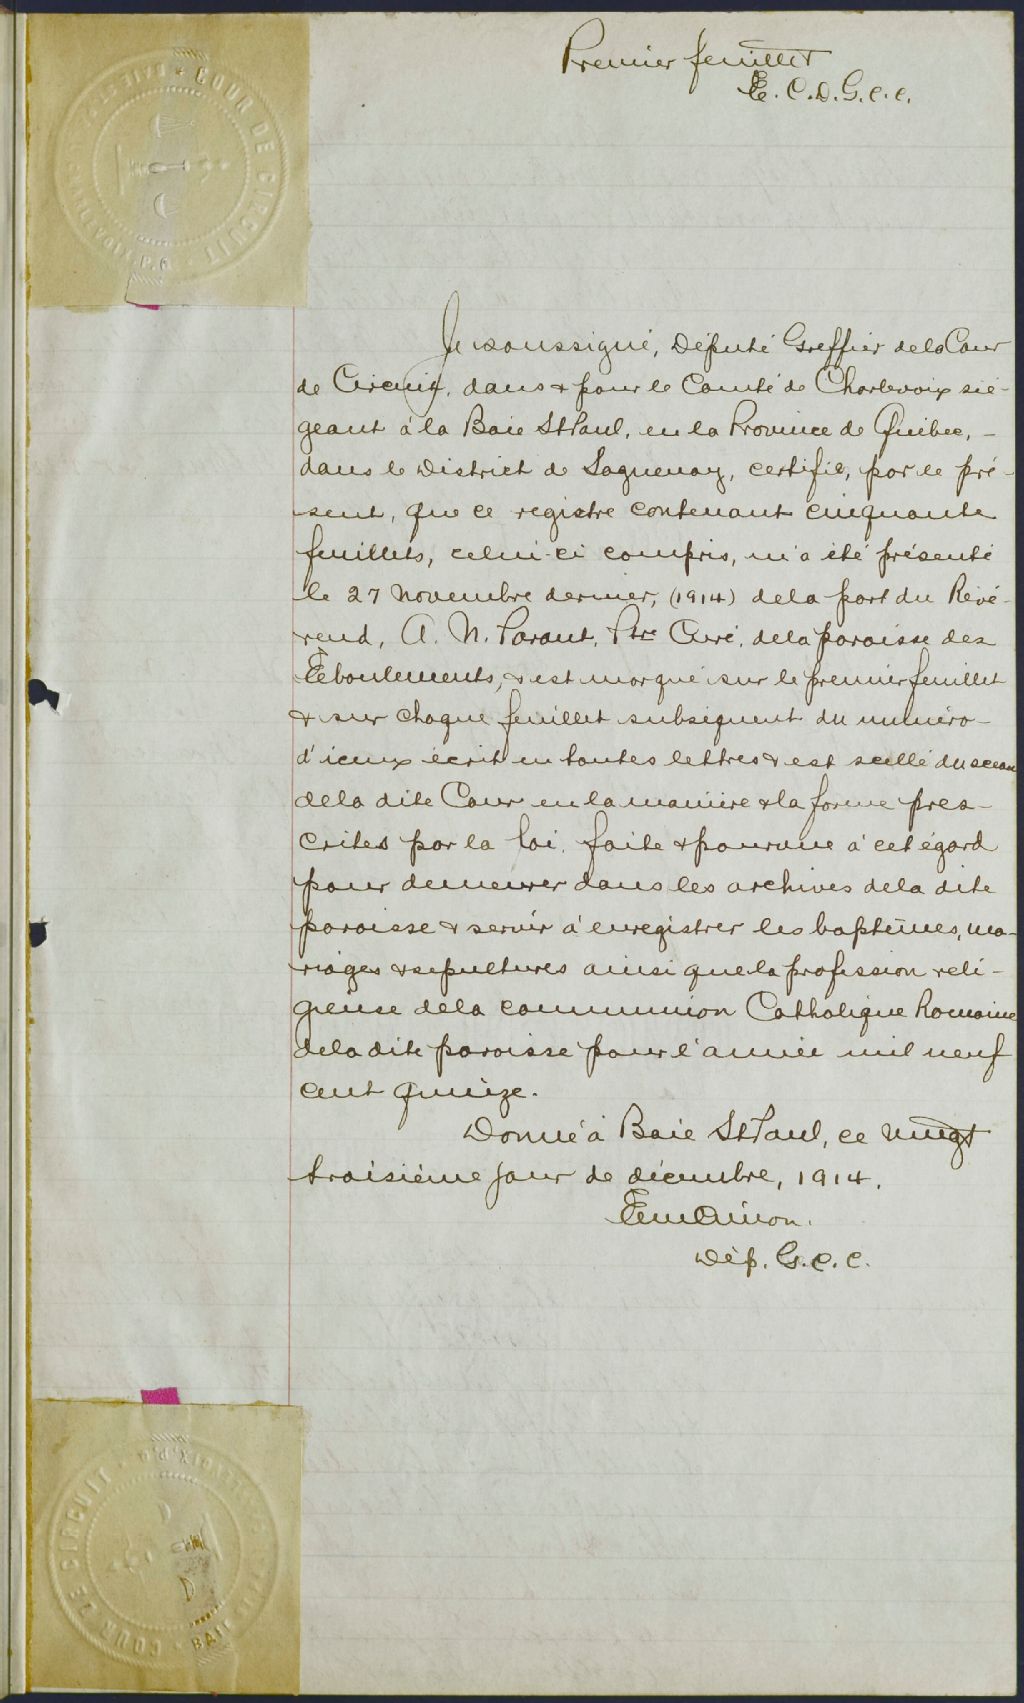 Premier feuillet
E. C. D. G. C. C.
COUR DE CIRCUIT
Je soussigné, Député Greffier de la Cour
de Circuit, dans & pour le Comté de Charlevoix sié-
geant à la Baie St Paul, en la Province de Québec, -
dans le District de Saguenay, certifie, par le pré-
sent, que ce registre contenant cinquante
feuillets, celui-ci compris, m'a été présenté
le 27 Novembre dernier, (1914) de la part du Révé-
rend, A. N. Parant, Ptre Curé, de la paroisse des
Éboulements, & est marqué sur le premier feuillet
& sur chaque feuillet subséquent du numéro -
d'iceux écrit en toutes lettres & est scellé du sceau
de la dite Cour en la manière & la forme pres-
crites par la loi, faite & pourvue à cet égard
pour demeurer dans les archives de la dite
paroisse & servir à enregistrer les baptêmes, ma-
riages & sépultures ainsi que la profession reli-
gieuse de la communion Catholique Romaine
de la dite paroisse pour l'année mil neuf
cent quinze.
Donné à Baie St Paul, ce vingt
troisième jour de décembre, 1914.
Dép. G. C. C.
COUR DE CIRCUIT
BAIE